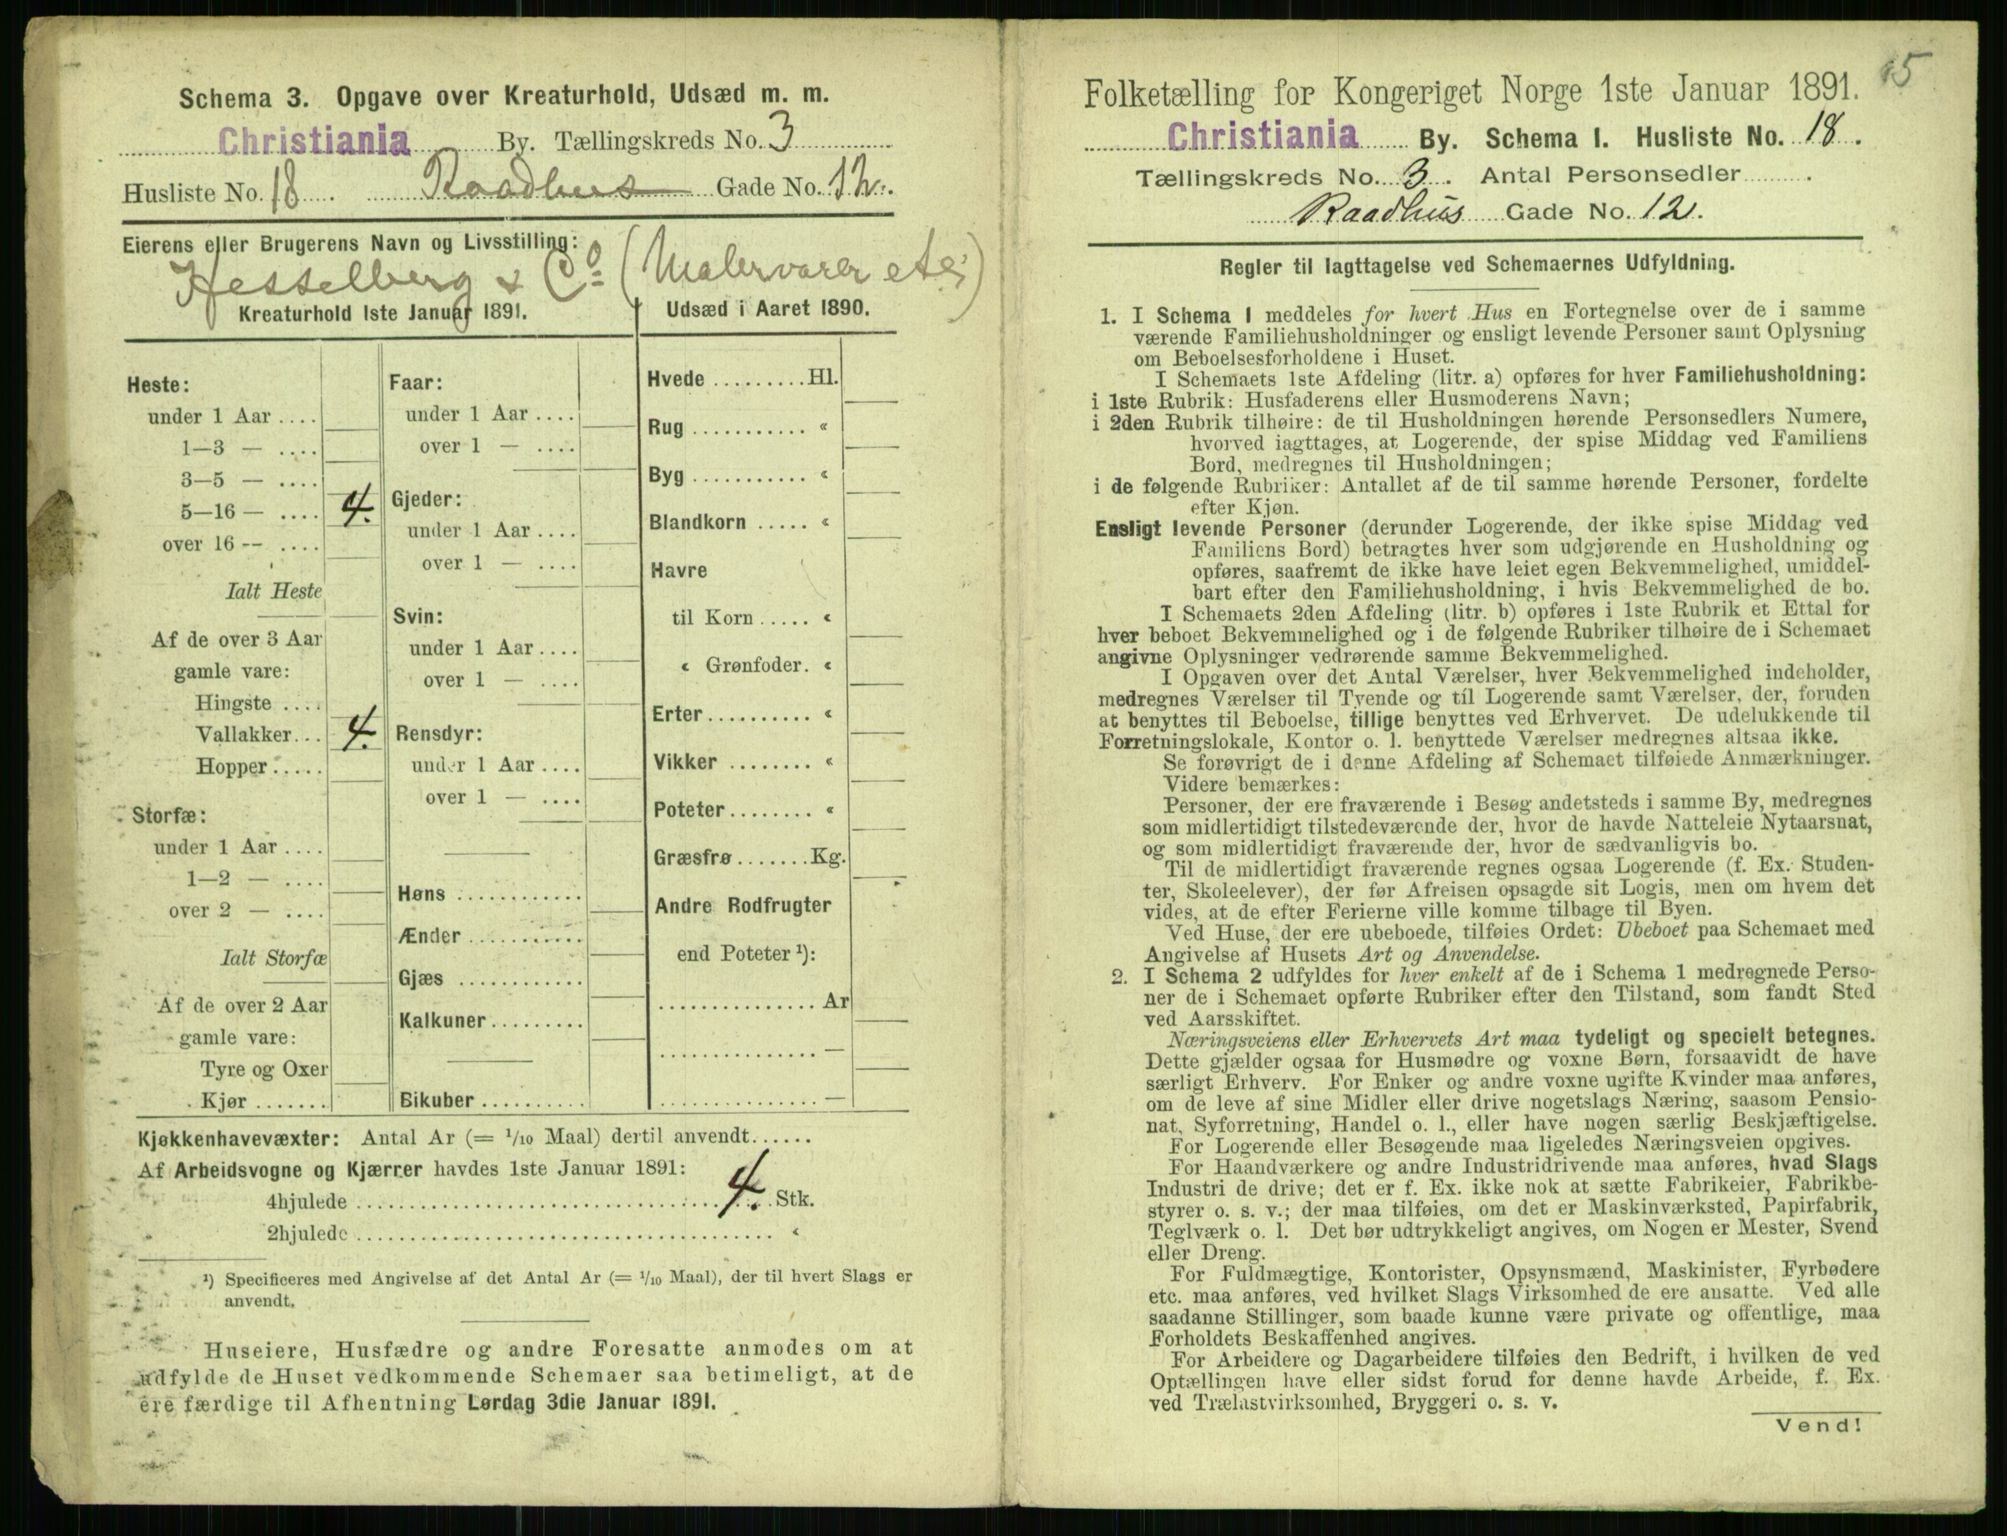 Schema 3. Opgave over Kreaturhold, Udsæd m. m.
Christiania By. Tællingskreds No. 3
Husliste No. 18. Raadhus Gade No. 12.
Eierens eller Brugerens Navn og Livsstilling:
Hesselberg & Co (Malervarer etc.)
Kreaturhold 1ste Januar 1891.
Heste:
under 1 Aar ....
1—3 — ....
3—5 — ....
5—16 — .... 4.
over 16 -- ....
Ialt Heste
Af de over 3 Aar
gamle vare:
Hingste ....
Vallakker... 4.
Hopper .....
Storfæ:
under 1 Aar ....
1—2 — ....
over 2 — ....
Ialt Storfæ
Af de over 2 Aar
gamle vare:
Tyre og Oxer
Kjør .......
Faar:
under 1 Aar ....
over 1 — ....
Gjeder:
under 1 Aar ....
over 1 — ....
Svin:
under 1 Aar ....
over 1 — ....
Rensdyr:
under 1 Aar ....
over 1 — ....
Høns ............
Ænder ...........
Gjæs ............
Kalkuner .........
Bikuber ..........
Udsæd i Aaret 1890.
Hvede ......... Hl.
Rug ........... «
Byg ........... «
Blandkorn ..... «
Havre
til Korn ..... «
« Grønfoder. «
Erter .......... «
Vikker ........ «
Poteter ........ «
Græsfrø ....... Kg.
Andre Rodfrugter
end Poteter ¹):
............... Ar
............... —
............... —
Kjøkkenhavevæxter: Antal Ar (= 1/10 Maal) dertil anvendt......
Af Arbeidsvogne og Kjærrer havdes 1ste Januar 1891:
4hjulede .................................. 4. Stk.
2hjulede ....................................... «
¹) Specificeres med Angivelse af det Antal Ar (= 1/10 Maal), der til hvert Slags er
anvendt.
Huseiere, Husfædre og andre Foresatte anmodes om at
udfylde de Huset vedkommende Schemaer saa betimeligt, at de
ere færdige til Afhentning Lørdag 3die Januar 1891.
15
Folketælling for Kongeriget Norge 1ste Januar 1891.
Christiania By. Schema I. Husliste No. 18.
Tællingskreds No. 3. Antal Personsedler .
Raadhus Gade No. 12.
Regler til Iagttagelse ved Schemaernes Udfyldning.
1. I Schema I meddeles for hvert Hus en Fortegnelse over de i samme
værende Familiehusholdninger og ensligt levende Personer samt Oplysning
om Beboelsesforholdene i Huset.
I Schemaets 1ste Afdeling (litr. a) opføres for hver Familiehusholdning:
i 1ste Rubrik: Husfaderens eller Husmoderens Navn;
i 2den Rubrik tilhøire: de til Husholdningen hørende Personsedlers Numere,
hvorved iagttages, at Logerende, der spise Middag ved Familiens
Bord, medregnes til Husholdningen;
i de følgende Rubriker: Antallet af de til samme hørende Personer, fordelte
efter Kjøn.
Ensligt levende Personer (derunder Logerende, der ikke spise Middag ved
Familiens Bord) betragtes hver som udgjørende en Husholdning og
opføres, saafremt de ikke have leiet egen Bekvemmelighed, umiddel-
bart efter den Familiehusholdning, i hvis Bekvemmelighed de bo.
I Schemaets 2den Afdeling (litr. b) opføres i 1ste Rubrik et Ettal for
hver beboet Bekvemmelighed og i de følgende Rubriker tilhøire de i Schemaet
angivne Oplysninger vedrørende samme Bekvemmelighed.
I Opgaven over det Antal Værelser, hver Bekvemmelighed indeholder,
medregnes Værelser til Tyende og til Logerende samt Værelser, der, foruden
at benyttes til Beboelse, tillige benyttes ved Erhvervet. De udelukkende til
Forretningslokale, Kontor o. l. benyttede Værelser medregnes altsaa ikke.
Se forøvrigt de i denne Afdeling af Schemaet tilføiede Anmærkninger.
Videre bemærkes:
Personer, der ere fraværende i Besøg andetsteds i samme By, medregnes
som midlertidigt tilstedeværende der, hvor de havde Natteleie Nytaarsnat,
og som midlertidigt fraværende der, hvor de sædvanligvis bo.
Til de midlertidigt fraværende regnes ogsaa Logerende (f. Ex. Studen-
ter, Skoleelever), der før Afreisen opsagde sit Logis, men om hvem det
vides, at de efter Ferierne ville komme tilbage til Byen.
Ved Huse, der ere ubeboede, tilføies Ordet: Ubeboet paa Schemaet med
Angivelse af Husets Art og Anvendelse.
2. I Schema 2 udfyldes for hver enkelt af de i Schema 1 medregnede Perso-
ner de i Schemaet opførte Rubriker efter den Tilstand, som fandt Sted
ved Aarsskiftet.
Næringsveiens eller Erhvervets Art maa tydeligt og specielt betegnes.
Dette gjælder ogsaa for Husmødre og voxne Børn, forsaavidt de have
særligt Erhverv. For Enker og andre voxne ugifte Kvinder maa anføres,
om de leve af sine Midler eller drive nogetslags Næring, saasom Pensio-
nat, Syforretning, Handel o. l., eller have nogen særlig Beskjæftigelse.
For Logerende eller Besøgende maa ligeledes Næringsveien opgives.
For Haandværkere og andre Industridrivende maa anføres, hvad Slags
Industri de drive; det er f. Ex. ikke nok at sætte Fabrikeier, Fabrikbe-
styrer o. s. v.; der maa tilføies, om det er Maskinværksted, Papirfabrik,
Teglværk o. l. Det bør udtrykkeligt angives, om Nogen er Mester, Svend
eller Dreng.
For Fuldmægtige, Kontorister, Opsynsmænd, Maskinister, Fyrbødere
etc. maa anføres, ved hvilket Slags Virksomhed de ere ansatte. Ved alle
saadanne Stillinger, som baade kunne være private og offentlige, maa
Forholdets Beskaffenhed angives.
For Arbeidere og Dagarbeidere tilføies den Bedrift, i hvilken de ved
Optællingen have eller sidst forud for denne havde Arbeide, f. Ex.
ved Trælastvirksomhed, Bryggeri o. s. v.
Vend!